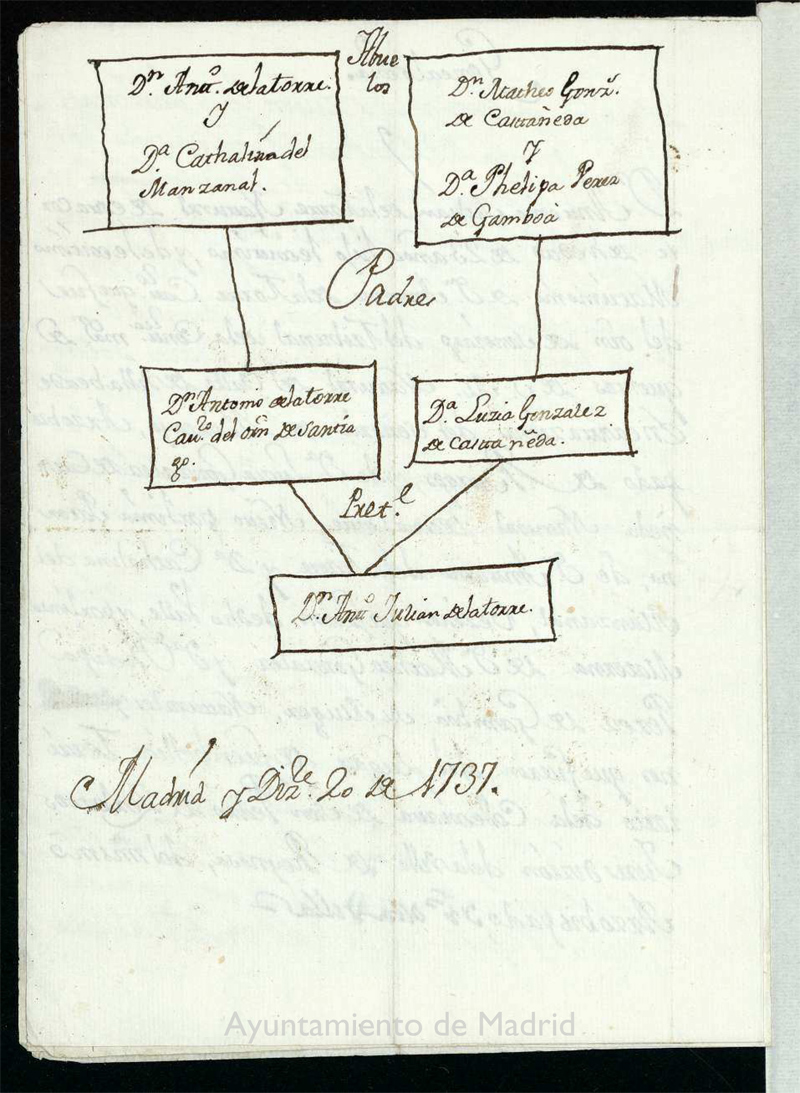 Abue
los
Dⁿ. Antº. delatorre.
Y
Dª Cathalina del
Manzanal.
Dⁿ. Matheo Gonz.
de Castañeda
Y
Dª. Phelipa Perez
de Gamboa
Padres
Dⁿ Antonio delatorre
Cauº. del orñ de Santia
go.
Dª. Luzia Gonzalez
de Castañeda.
Pret.e
Dⁿ. Antº Julian delatorre.
Madrid y Dizre. 20 de 1737.
Ayuntamiento de Madrid